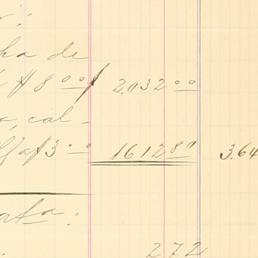 ha de
$ 8 00 2,032 00
a, cal-
a $ 3 00 1612 80 3.64
ata:
272